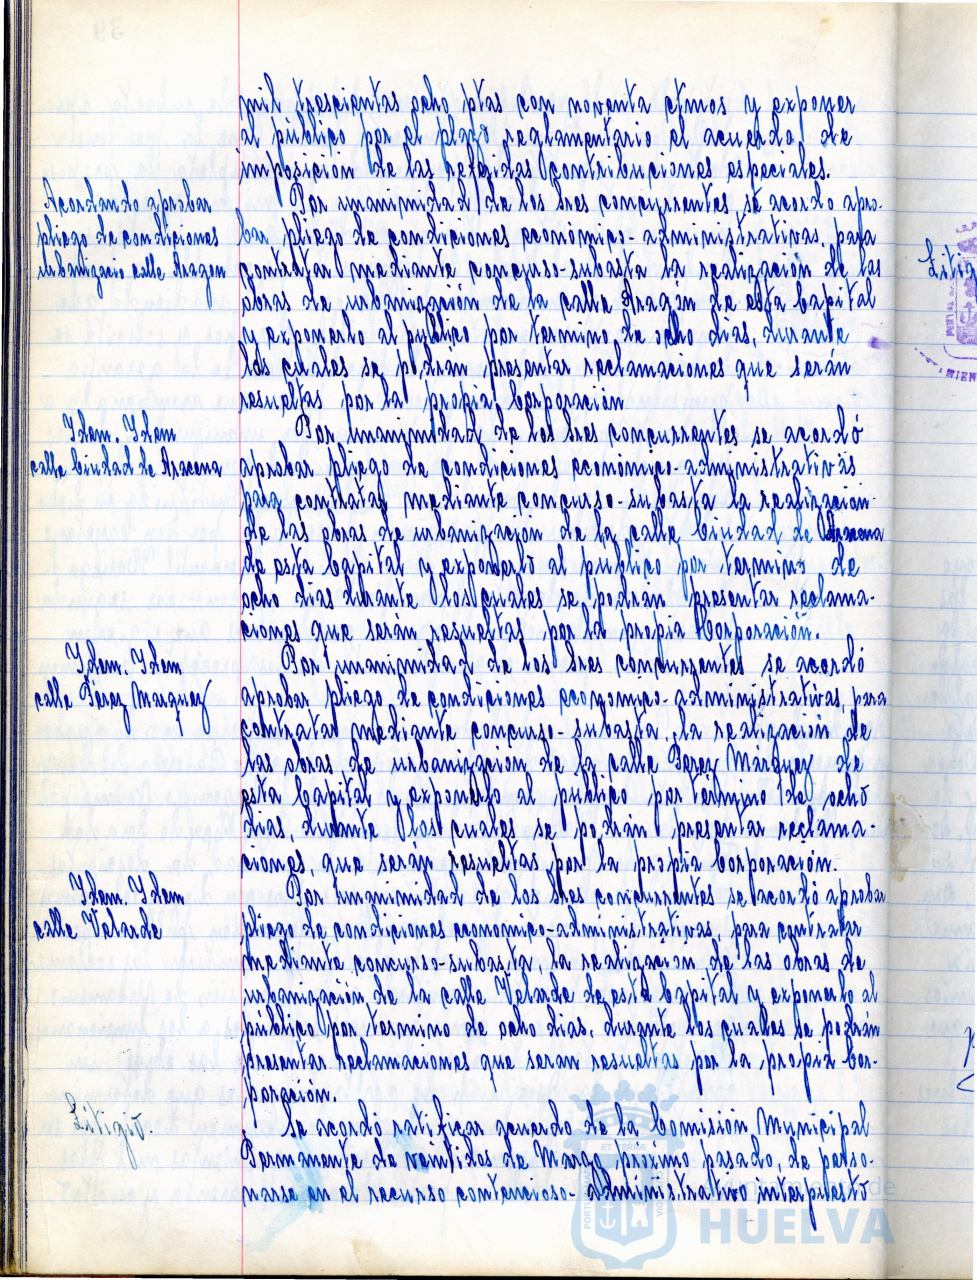 mil trescientas ocho ptas con noventa ctmos y exponer
al público por el plazo reglamentario el acuerdo de
imposición de las referidas contribuciones especiales.
Acordando aprobar
pliego de condiciones
urbanizacio calle Aragon
Por unanimidad de los sres concurrentes se acordo apro-
bar pliego de condiciones económico-administrativas, para
contratar mediante concurso-subasta la realización de las
obras de urbanización de la calle Aragón de esta Capital
y exponerlo al publico por termino de ocho dias, durante
los cuales se podran presentar reclamaciones que serán
resueltas por la propia Corporación
Idem. Idem
calle Ciudad de Aracena
Por unanimidad de los sres concurrentes se acordó
aprobar pliego de condiciones economico-administrativas
para contratar mediante concurso-subasta la realización
de las obras de urbanización de la calle Ciudad de Aracena
de esta Capital y exponerlo al publico por termino de
ocho dias durante los cuales se podran presentar reclama-
ciones que serán resueltas por la propia Corporación.
Idem. Idem
calle Perez Marquez
Por unanimidad de los sres concurrentes se acordó
aprobar pliego de condiciones economico-administrativas, para
contratar mediante concurso-subasta, la realización de
las obras de urbanización de la calle Perez Marquez de
esta Capital y exponerlo al publico por término de ocho
dias, durante los cuales se podran presentar reclama-
ciones, que serán resueltas por la propia Corporación.
Idem. Idem
calle Velarde
Por unanimidad de los sres concurrentes se acordó aprobar
pliego de condiciones económico-administrativas, para contratar
mediante concurso-subasta, la realización de las obras de
urbanización de la calle Velarde de esta Capital y exponerlo al
público por termino de ocho dias, durante los cuales se podrán
presentar reclamaciones que seran resueltas por la propia Cor-
poración.
Litigio.
Se acordó ratificar acuerdo de la Comisión Municipal
Permanente de veintidos de Marzo próximo pasado, de perso-
narse en el recurso contencioso-administrativo interpuesto
Ayuntamiento de
HUELVA